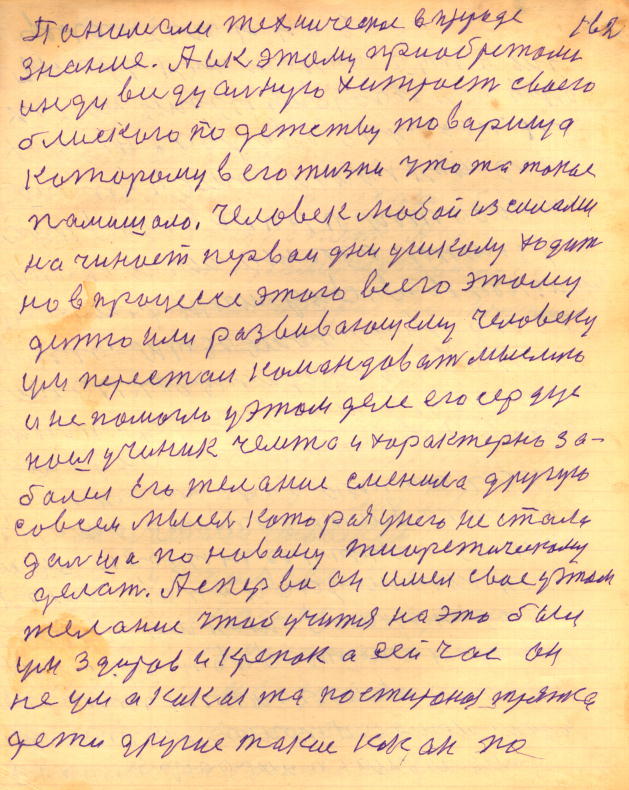 162
Понимали техническое в природе
знание. А и к этому приобретали
индивидуалную хитрост своего
блиского по детству товарища
которому в его жизни что та такае
памишало. Человек любой из самами
начинает первои дни у школу ходит
но в процессе этого всего этому
дитю или развивающему человеку
ум перестал командоват мыслию
и не помогло у этом деле его сердце
поел ученик чемто и характерно за-
балел Его желание сменила другую
совсем мысел которая у него не стала
далша по новому тиоретическому
делат. А сперва он имел свае у этом
желание чтоб учится на это был
ум здоров и крепок а сей час он
не ум а какая та постироная тряпка
дети другие такие как он по